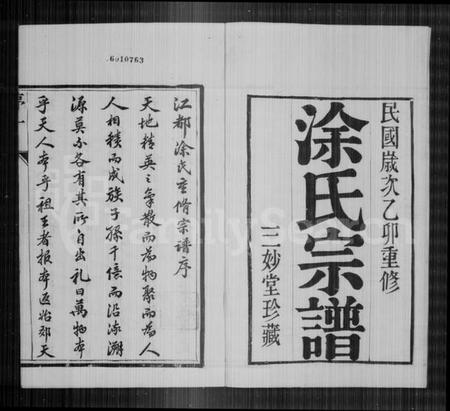 6010763
民國歲次乙卯重修
涂氏宗譜
三妙堂珍藏
江都涂氏重脩宗譜序
天地積英之氣散而為物聚而為人
人相積而成族子孫千億而沿流溯
源莫不各有其所自出礼曰萬物本
乎天人本乎祖王者報本返始郊天
FamilySearch